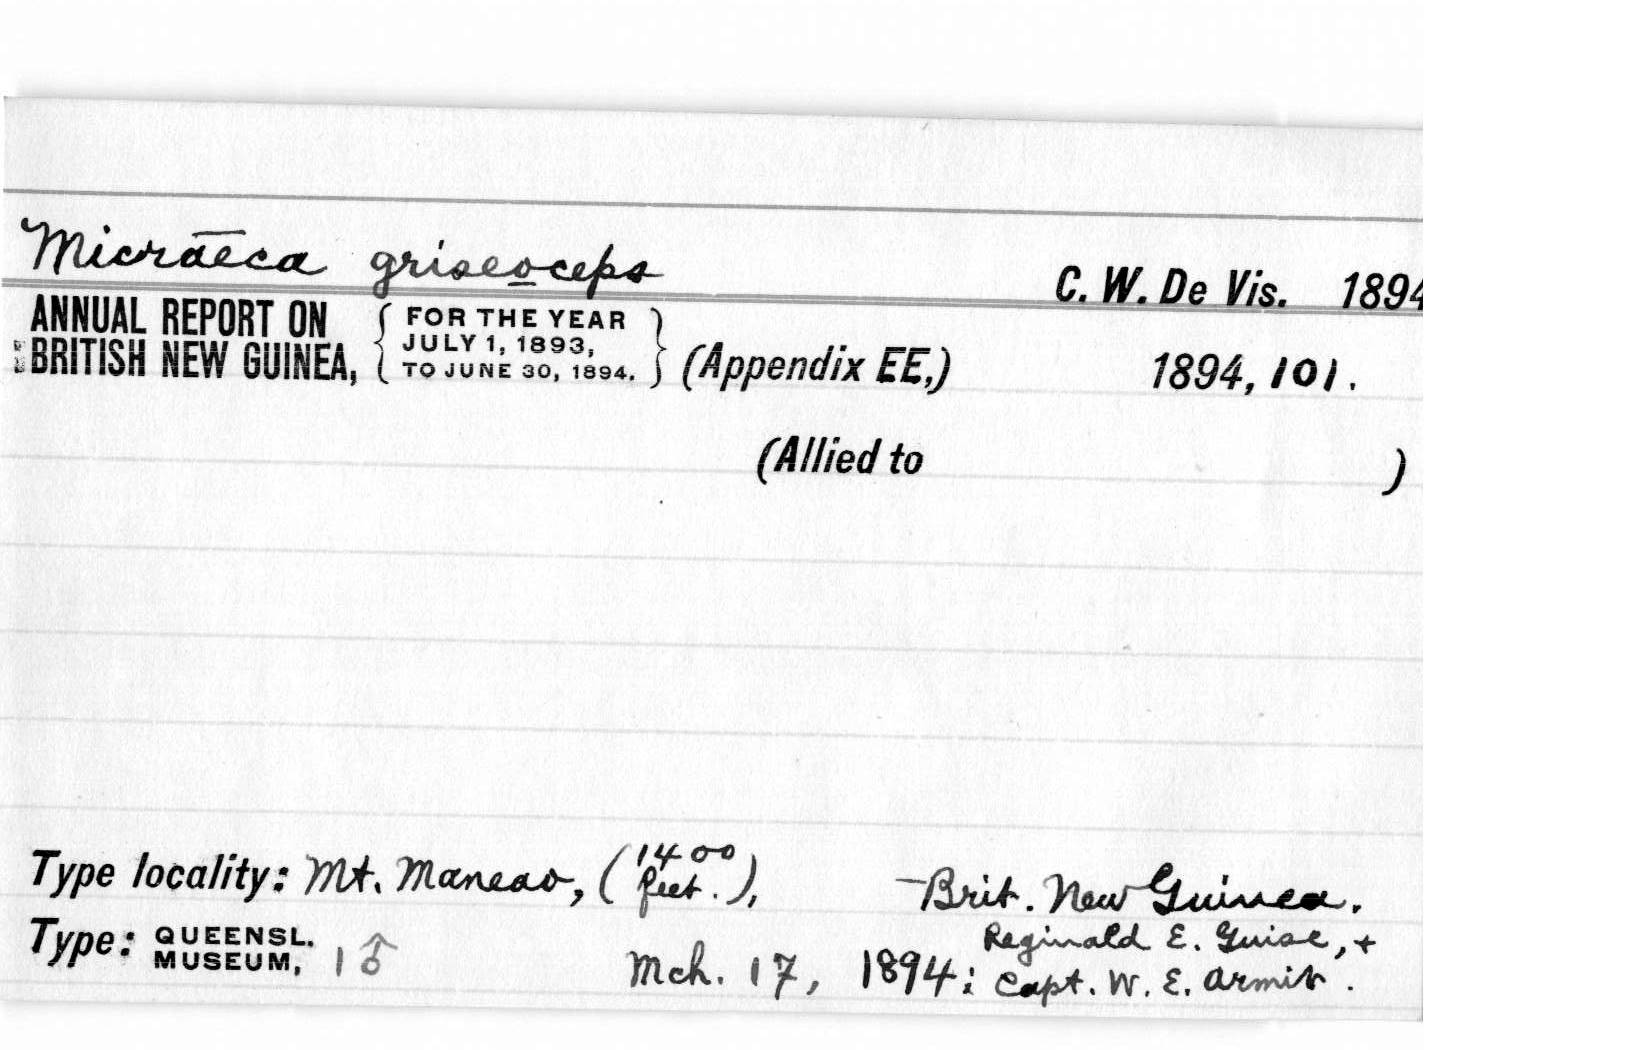 Micrāēca griseoceps C. W. De Vis. 1894
ANNUAL REPORT ON BRITISH NEW GUINEA, { FOR THE YEAR JULY 1, 1893, TO JUNE 30, 1894. } (Appendix EE,) 1894, 101.
(Allied to )
Type locality: Mt. Maneao, (1400 feet.), Brit. New Guinea.
Type: QUEENSL. MUSEUM, 1 ♂ Mch. 17, 1894: Reginald E. Guise, + Capt. W. E. Armit.